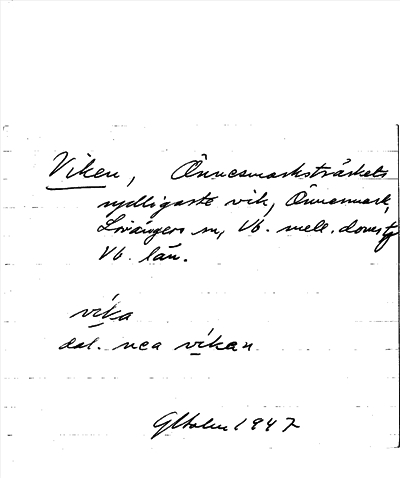 Viken, Önnesmarksträskets
sydligaste vik, Önnesmark,
Lövångers sn, Vb. mell. doms tg
Vb. län.
vika
dat. nea víkan
GHolm 1947